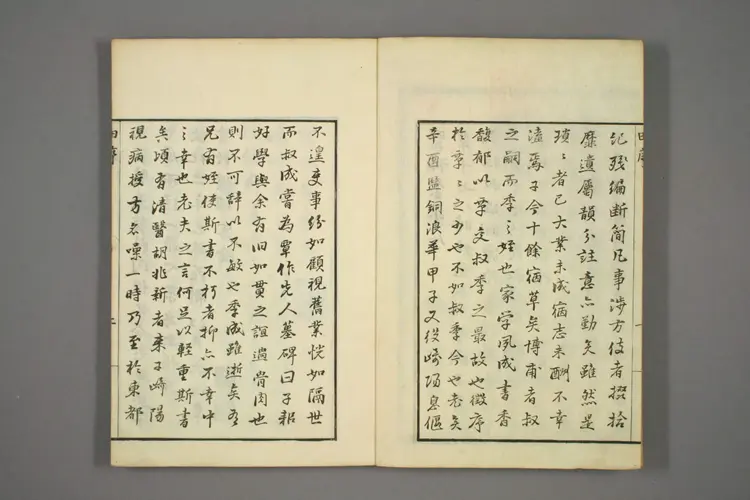 記殘編断簡凡事涉方伎者掇拾
靡遺屬韻分註意亦勤矣雖然是
瑣々者已大業未成宿志未酬不幸
溘焉于今十餘宿草矣博甫者叔
之嗣而季之姪也家学夙成書香
馥郁以覃交叔季之最故也徵序
於覃々之少也不如叔季今也老矣
辛酉監銅浪華甲子又役崎陽
不遑吏事紛如顧視舊業恍如隔世
而叔成嘗為覃作先人墓碑曰子耜
好學與余有旧如貫之誼過骨肉也
則不可辞以不敏也季成雖逝矣有
兄有姪使斯書不朽者抑亦不幸中
之幸也老夫之言何足以軽重斯書
矣頃有清醫胡兆新者来于崎陽
視病授方名噪一時乃至於東都